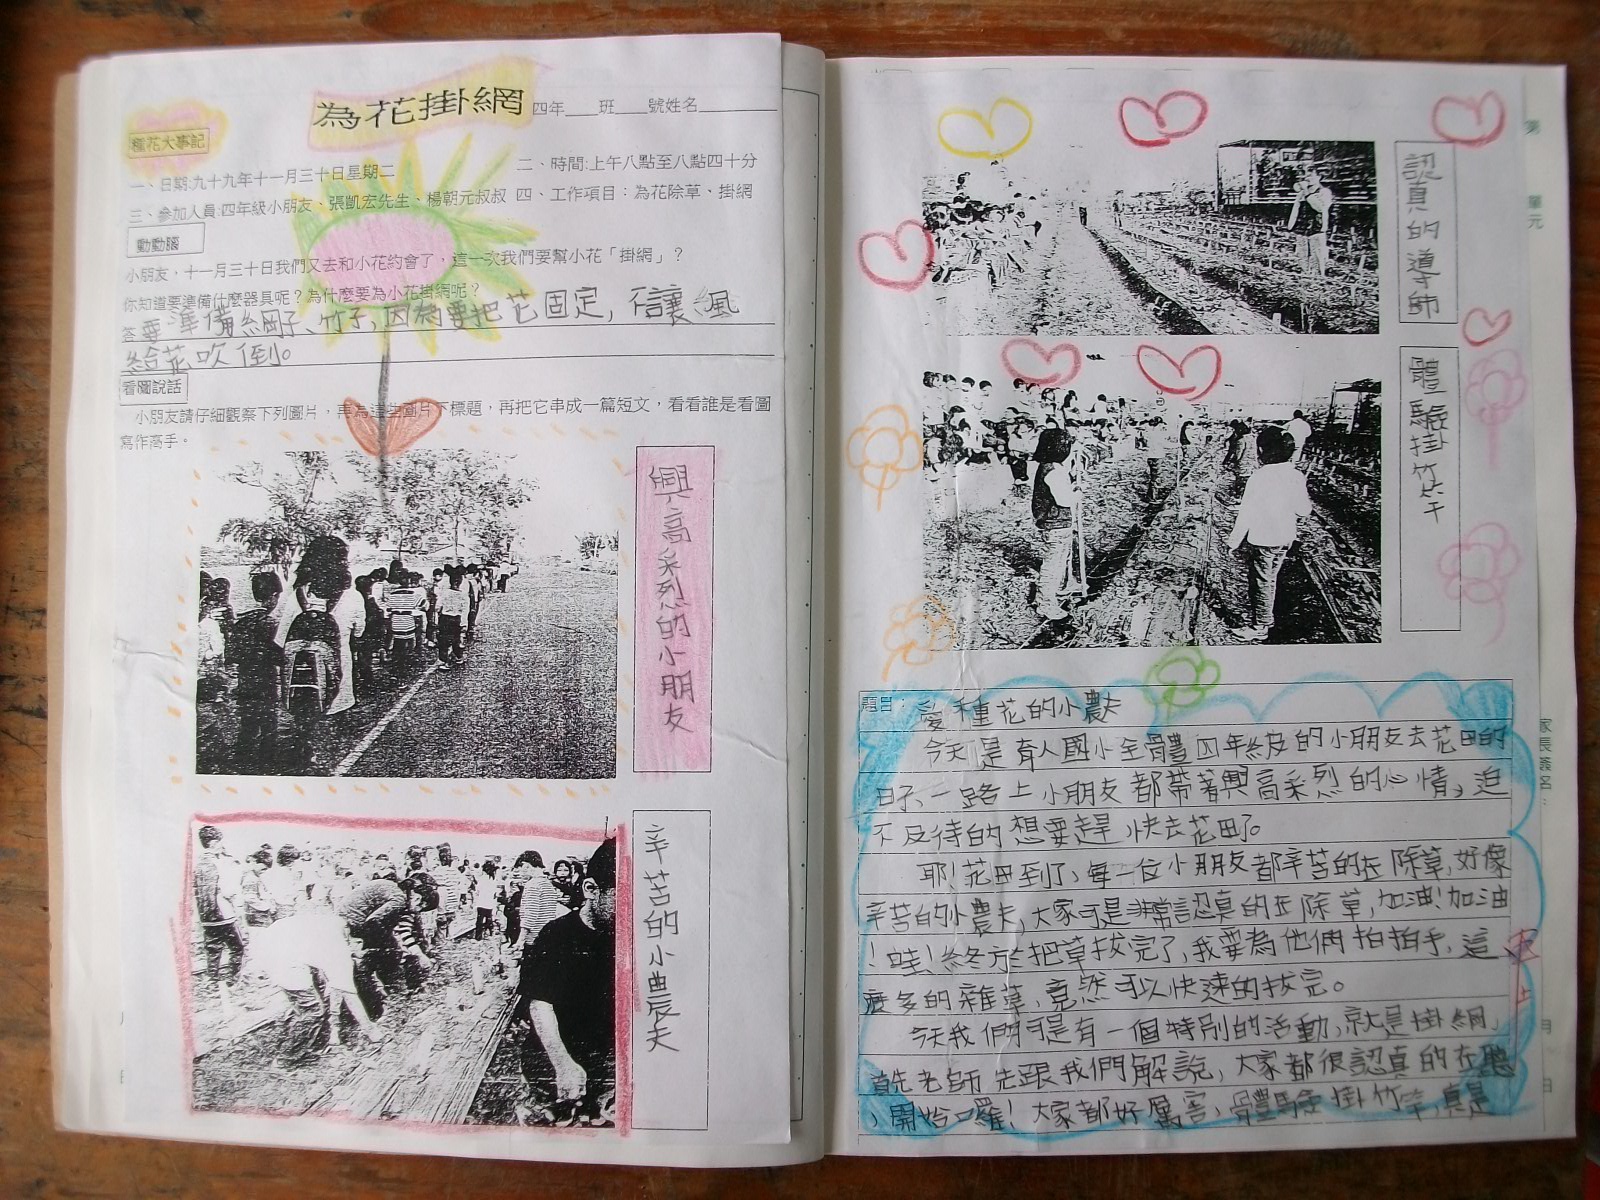 為花掛網 四年___班___號姓名________
種花大事記
一、日期:九十九年十一月三十日星期二 二、時間:上午八點至八點四十分
三、參加人員:四年級小朋友、張凱宏先生、楊朝元叔叔 四、工作項目：為花除草、掛網
動動腦
小朋友，十一月三十日我們又去和小花約會了，這一次我們要幫小花「掛網」？
你知道要準備什麼器具呢？為什麼要為小花掛網呢？
答要準備網子、竹子,因為要把花固定,不讓風
給花吹倒。
看圖說話
小朋友請仔細觀察下列圖片，再為這些圖片下標題，再把它串成一篇短文，看看誰是看圖
寫作高手。
興高采烈的小朋友
辛苦的小農夫
認真的導師
體驗掛竹竿
題目：愛種花的小農夫
今天是育人國小全體四年級的小朋友去花田的
日子、一路上小朋友都帶著興高采烈的心情,迫
不及待的想要趕快去花田了。
耶!花田到了,每一位小朋友都辛苦的在除草,好像
辛苦的小農夫,大家可是非常認真的在除草,加油!加油
!哇!終於把草拔完了,我要為他們拍拍手,這
麼多的雜草,竟然可以快速的拔完。
今天我們可是有一個特別的活動,就是掛網,
首先老師先跟我們解說,大家都很認真的在聽
,開始囉!大家都好厲害,體驗掛竹竿,真是
第 單元
家長簽名：
月
日